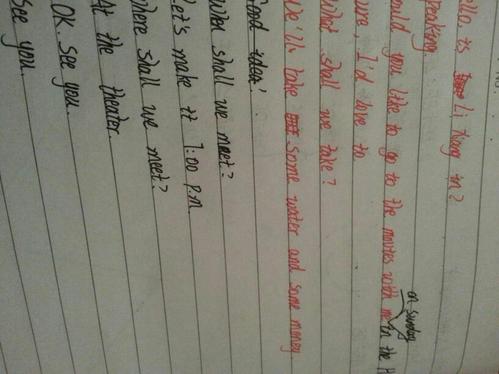 is Li Kang in?
speaking.
would you like to go to the movies with me in the
on sunday
sure, I'd love to
What shall we take?
We'll take some water and some money
Good idea!
When shall we meet?
Let's make it 7:00 p.m
Where shall we meet?
At the theater.
OK. See you.
See you.